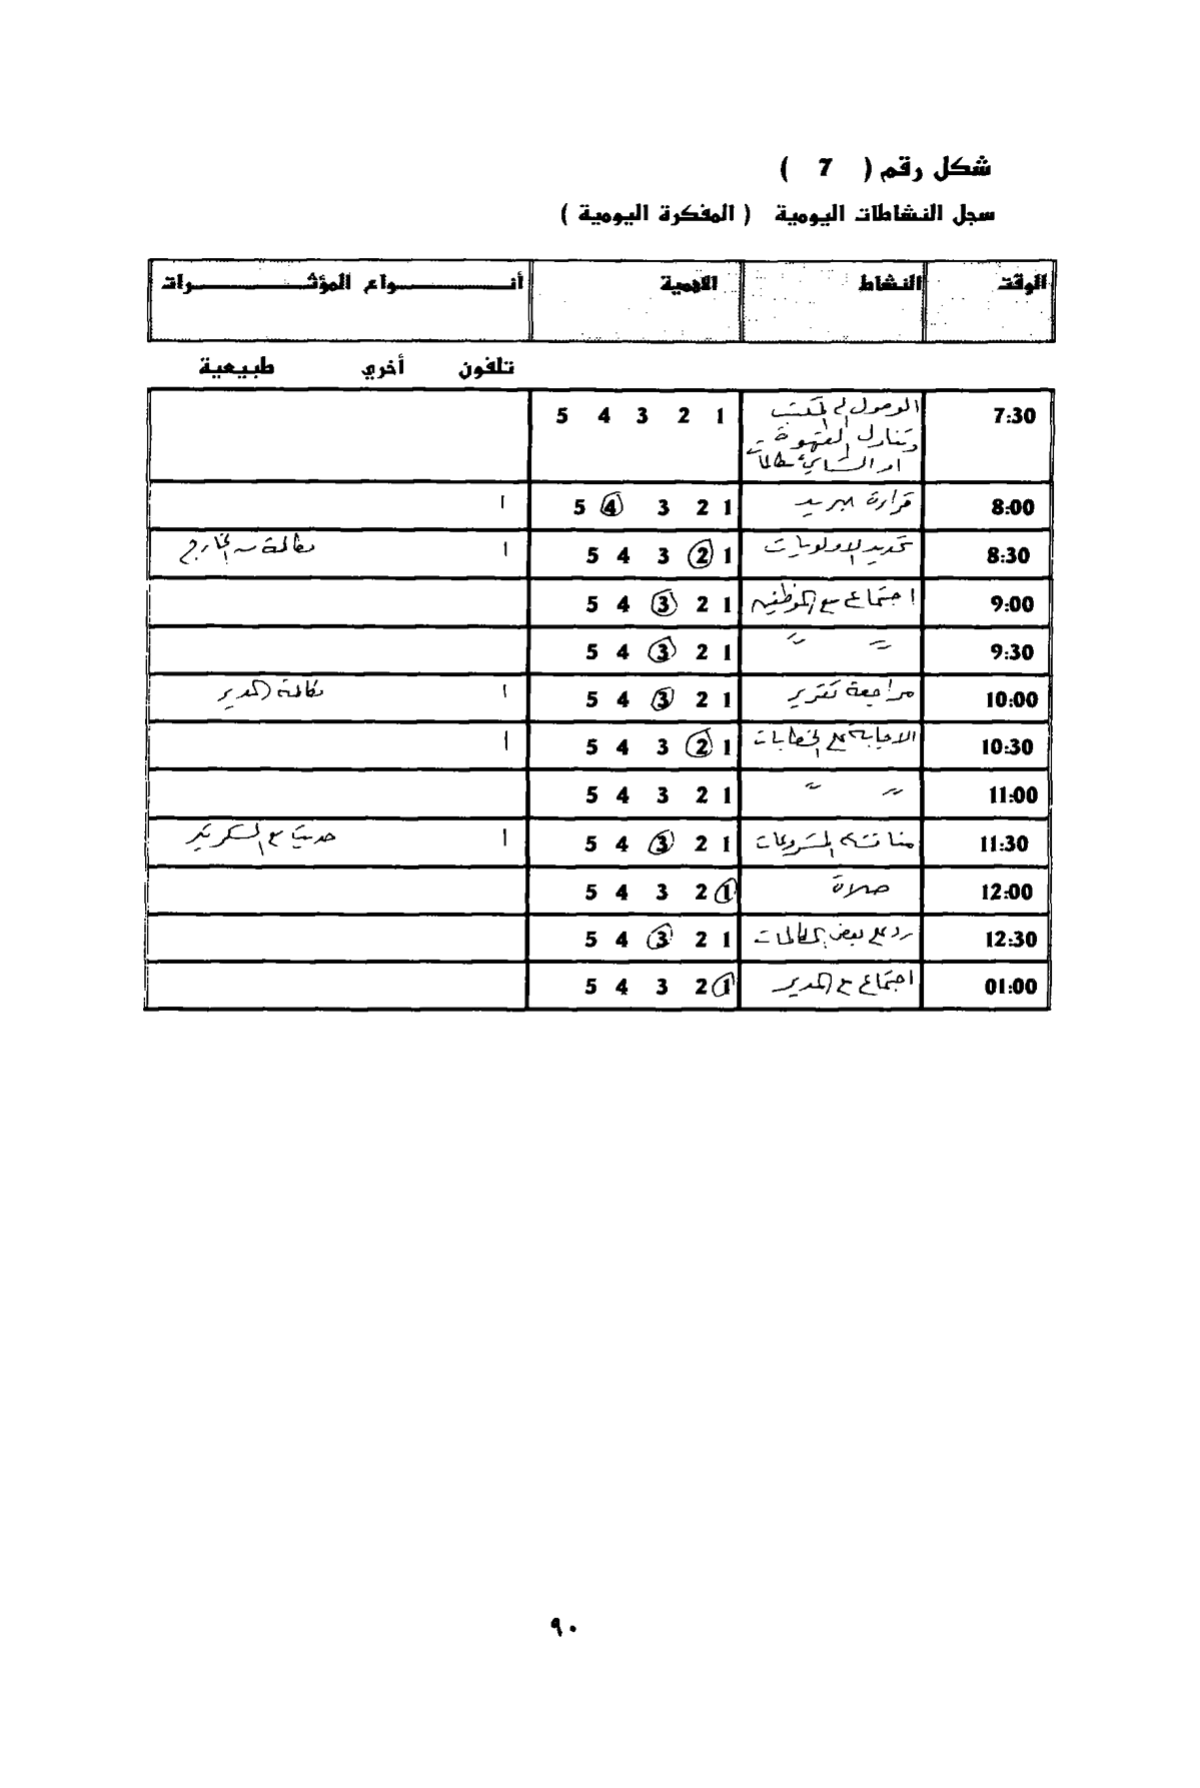 شكل رقم ( 7 )
سجل النشاطات اليومية ( المفكرة اليومية )
الوقت النشاط الاهمية أنـــــــواع المؤثـــــــرات
تلفون أخري طبيعية
7:30 الوصول الى المكتب 1 2 3 4 5
وتناول القهوة
او الشاي مكالمات
8:00 قراءة البريد 1 2 3 4 5 ا
8:30 تحديد الاولويات 1 2 3 4 5 ا مكالمة من الخارج
9:00 اجتماع مع الموظفين 1 2 3 4 5
9:30 〃 〃 1 2 3 4 5
10:00 مراجعة تقرير 1 2 3 4 5 ا مكالمة المدير
10:30 الاجابة على الخطابات 1 2 3 4 5 ا
11:00 〃 〃 1 2 3 4 5
11:30 مناقشة المشروعات 1 2 3 4 5 ا حديث مع السكرتير
12:00 صلاة 1 2 3 4 5
12:30 رد على بعض المكالمات 1 2 3 4 5
01:00 اجتماع مع المدير 1 2 3 4 5
٩٠